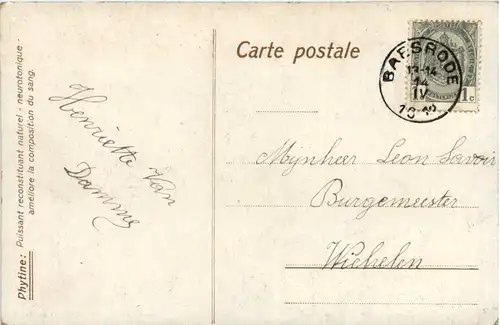 Phytine: Puissant reconstituant naturel - neurotonique -
améliore la composition du sang.
Carte postale
BAESRODE
13-14
14
IV
1912
1c
Henriette Van
Damme
Mijnheer Leon Savoir
Burgemeester
Wichelen